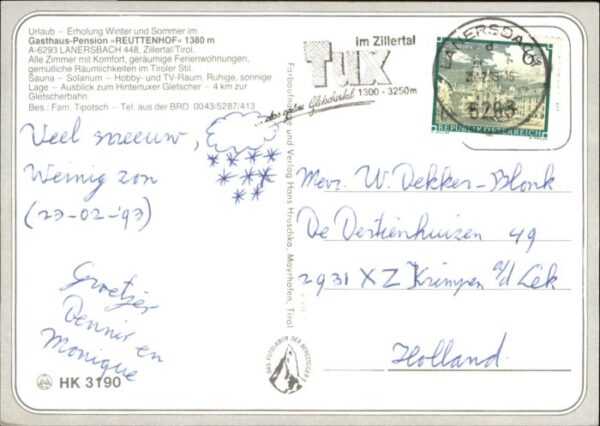 Urlaub – Erholung Winter und Sommer im
Gasthaus-Pension »REUTTENHOF« 1380 m
A-6293 LANERSBACH 448, Zillertal/Tirol.
Alle Zimmer mit Komfort, geräumige Ferienwohnungen,
gemütliche Räumlichkeiten im Tiroler Stil.
Sauna – Solarium – Hobby- und TV-Raum. Ruhige, sonnige
Lage – Ausblick zum Hintertuxer Gletscher – 4 km zur
Gletscherbahn.
Bes.: Fam. Tipotsch – Tel. aus der BRD 0043/5287/413
im Zillertal
Tux
1300 - 3250m
6293
REPUBLIK ÖSTERREICH
Veel sneeuw,
Weinig zon
(23-02-'93)
Groetjes
Dennis en
Monique
HK 3190
Farbaufnahme und Verlag Hans Hruschka, Mayrhofen, Tirol
DAS FOTOLABOR DER BERGSTEIGER
Mevr. W. Dekker-Blonk
De Dertienhuizen 49
2931 XZ Krimpen a/d Lek
Holland.